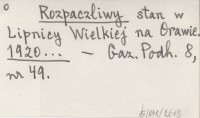 o Rozpaczliwy stan w
Lipnicy Wielkiej na Orawie.
1920... — Gaz. Podh. 8,
nr 49.